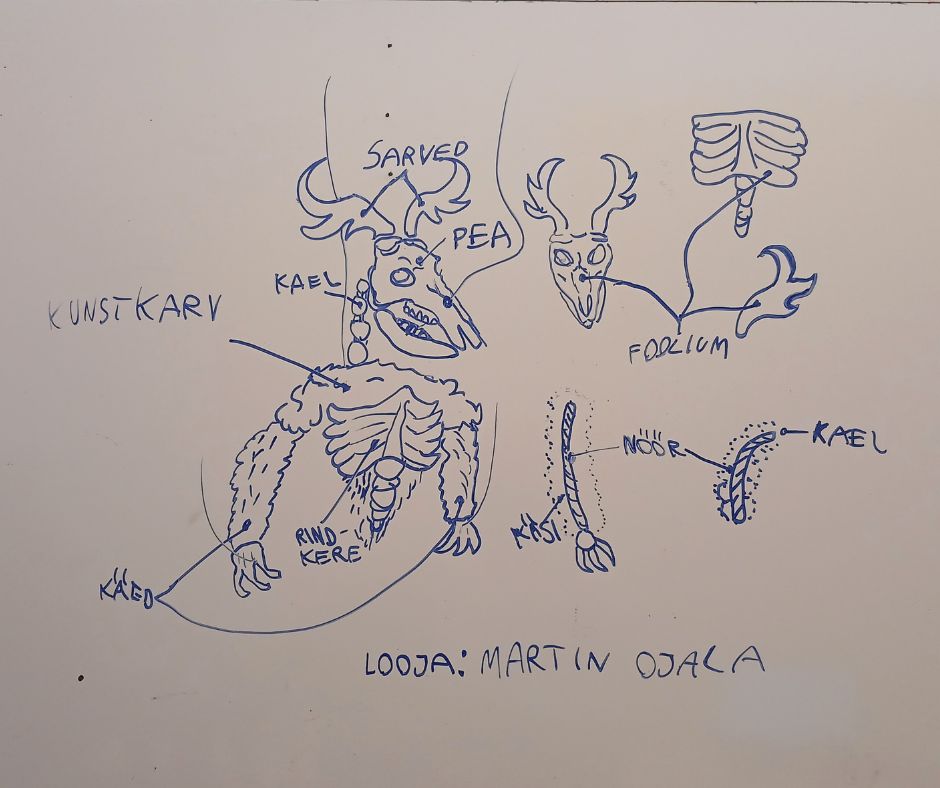 SARVED
PEA
KAEL
KUNSTKARV
FOOLIUM
NÖÖR
KAEL
KÄSI
RIND-
KERE
KÄED
LOOJA: MARTIN OJALA